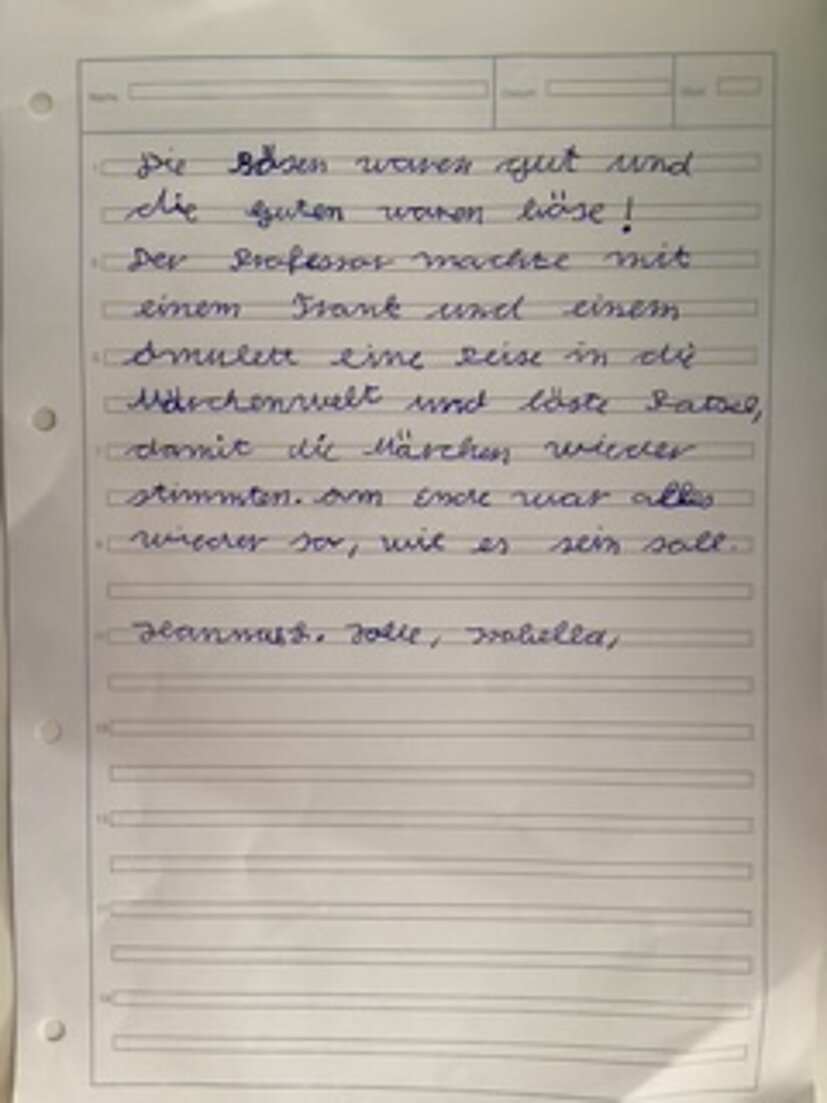 Name
Datum
Die Bösen waren gut und
die guten waren böse!
Der Professor machte mit
einem Trank und einem
Amulett eine Reise in die
Märchenwelt und löste Ratsel,
damit die Märchen wieder
stimmten. Am Ende war alles
wieder so, wie es sein soll.
Isabella,